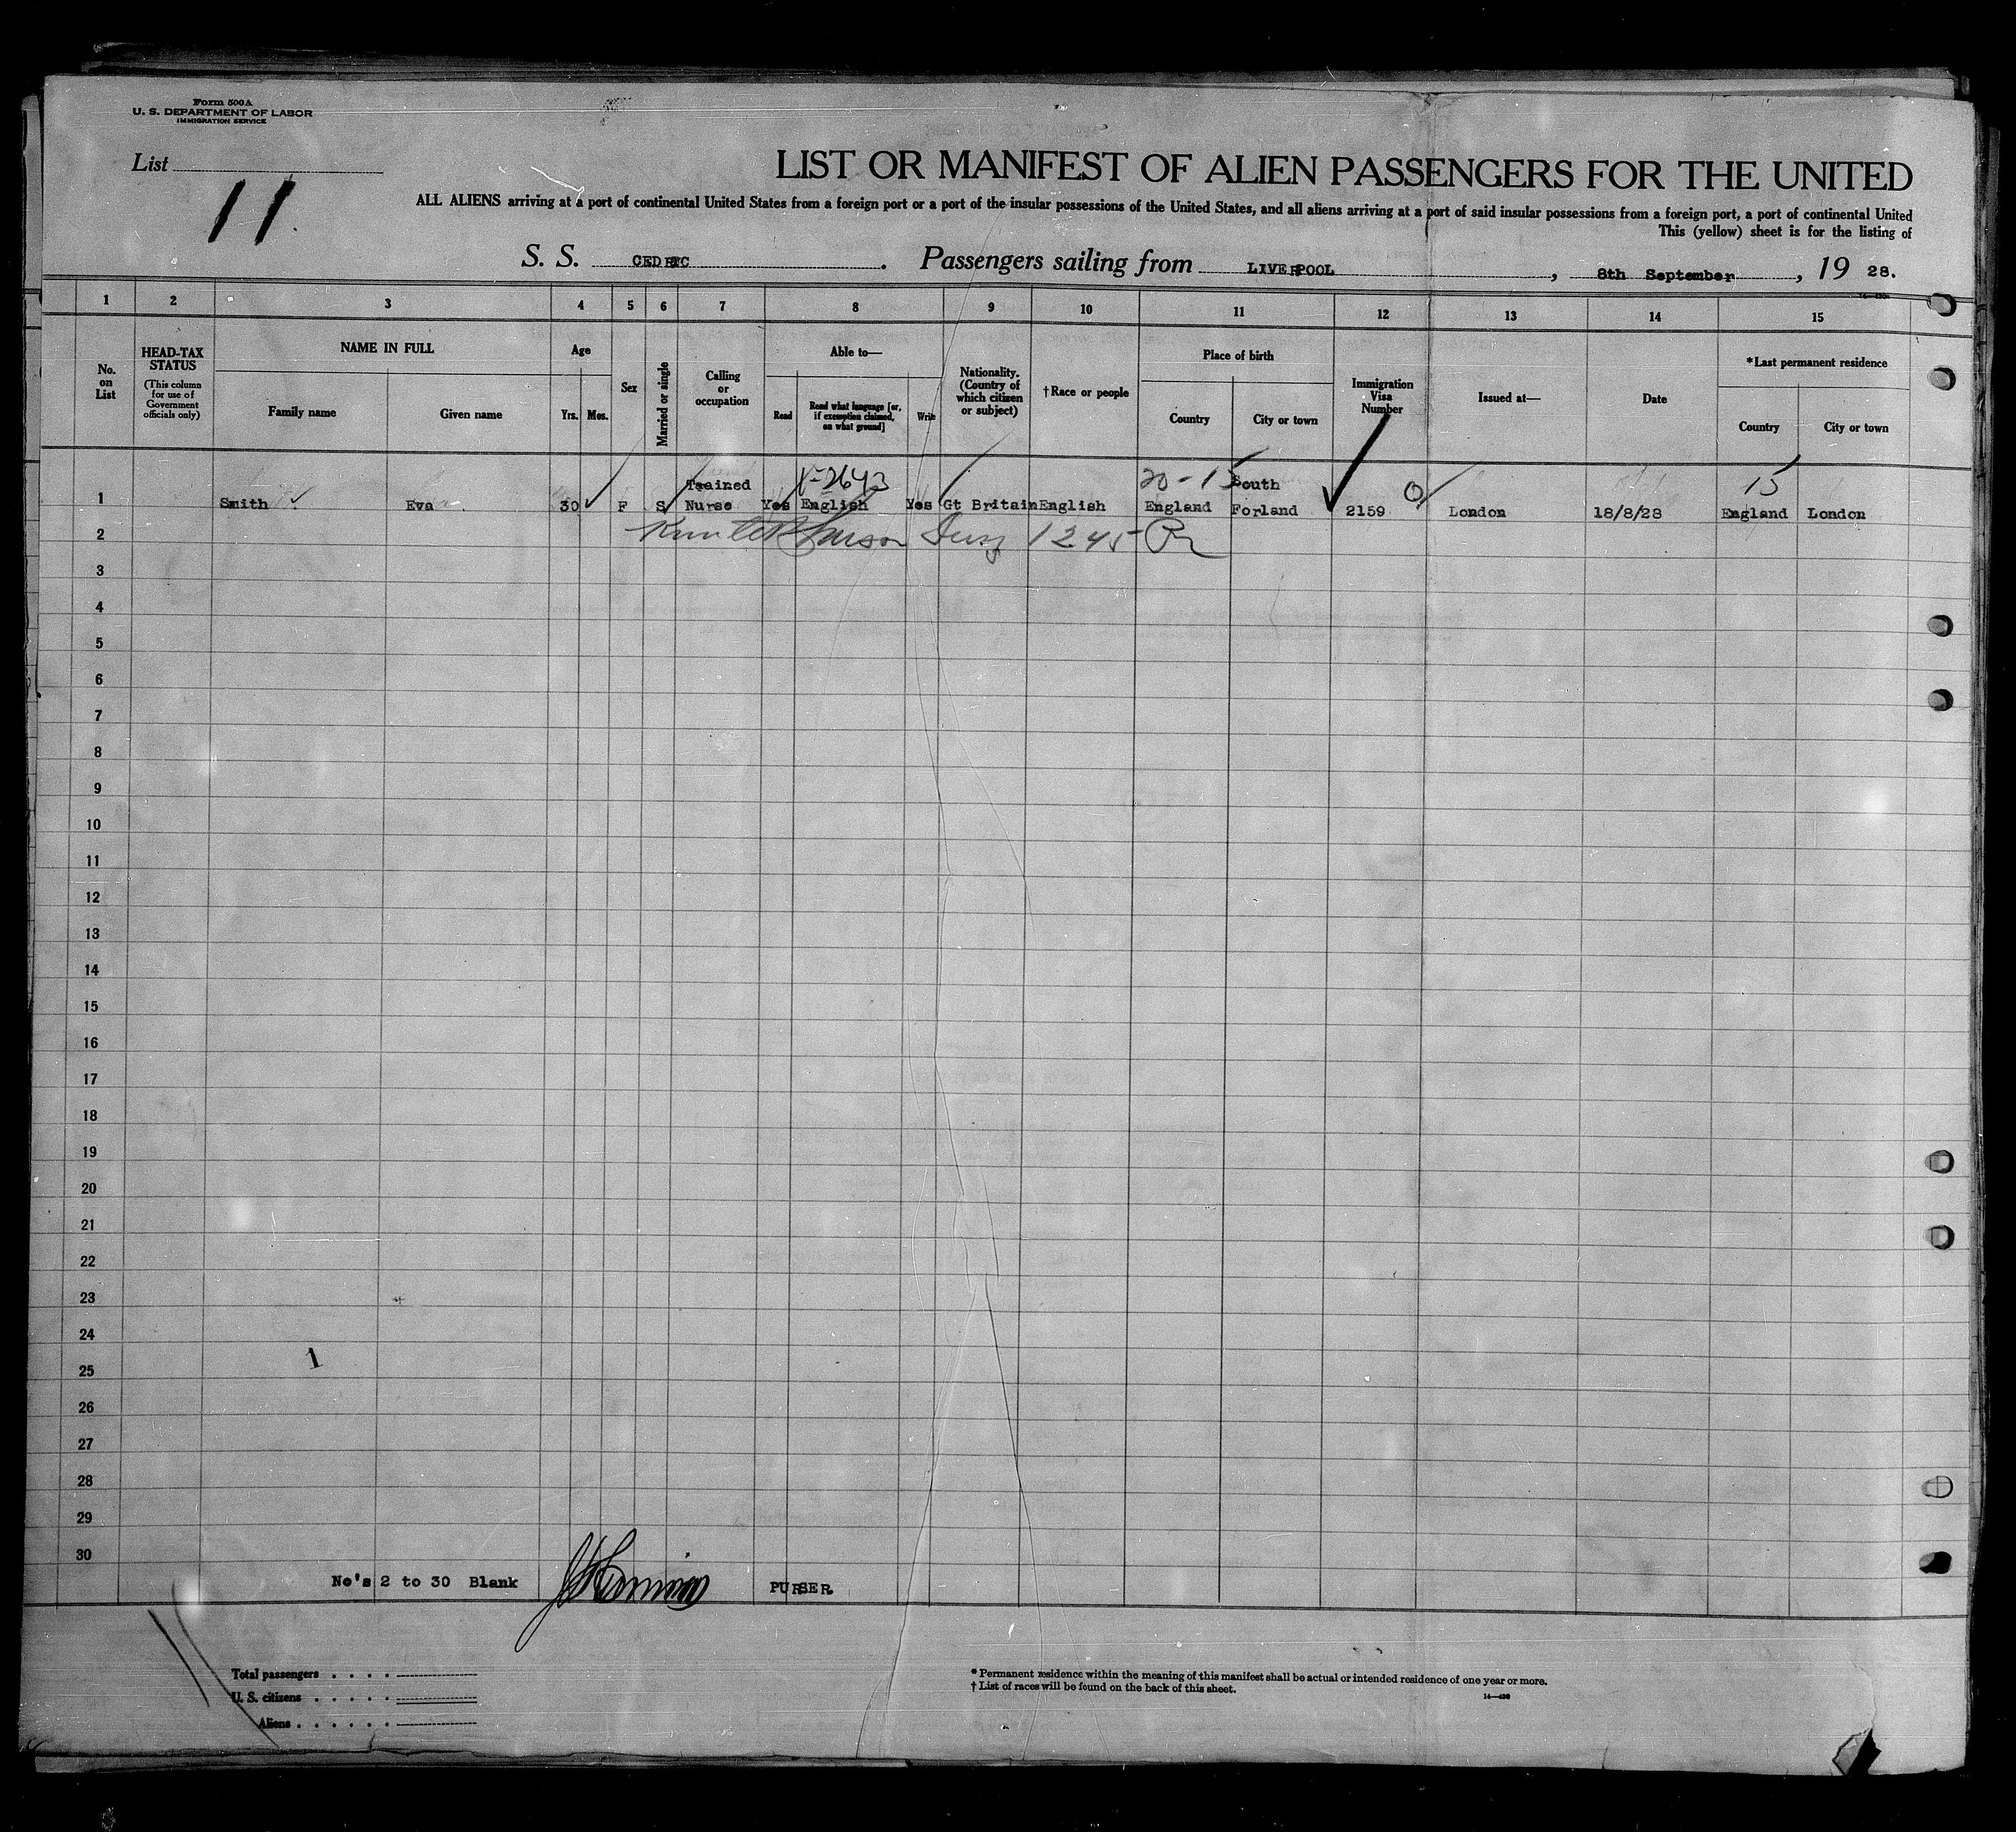 Form 500A
U. S. DEPARTMENT OF LABOR
IMMIGRATION SERVICE
List
11
LIST OR MANIFEST OF ALIEN PASSENGERS FOR THE UNITED
ALL ALIENS arriving at a port of continental United States from a foreign port or a port of the insular possessions of the United States, and all aliens arriving at a port of said insular possessions from a foreign port, a port of continental United
This (yellow) sheet is for the listing of
S. S. CEDRIC. Passengers sailing from LIVERPOOL, 8th September, 19 28.
1 2 3 4 5 6 7 8 9 10 11 12 13 14 15
No. on List
HEAD-TAX STATUS
(This column for use of Government officials only)
NAME IN FULL
Family name Given name
Age
Yrs. Mos.
Sex
Married or single
Calling or occupation
Able to—
Read
Read what language [or, if exemption claimed, on what ground]
Write
Nationality. (Country of which citizen or subject)
†Race or people
Place of birth
Country City or town
Immigration Visa Number
Issued at—
Date
*Last permanent residence
Country City or town
Trained V-2643 20-15 South 15
1 Smith Eva 30 F S Nurse Yes English Yes Gt Britain English England Forland 2159 London 18/8/28 England London
2 1245
3
4
5
6
7
8
9
10
11
12
13
14
15
16
17
18
19
20
21
22
23
24
1
25
26
27
28
29
30
No's 2 to 30 Blank PURSER
Total passengers . . . .
U. S. citizens . . . . .
Aliens . . . . . .
* Permanent residence within the meaning of this manifest shall be actual or intended residence of one year or more.
† List of races will be found on the back of this sheet.